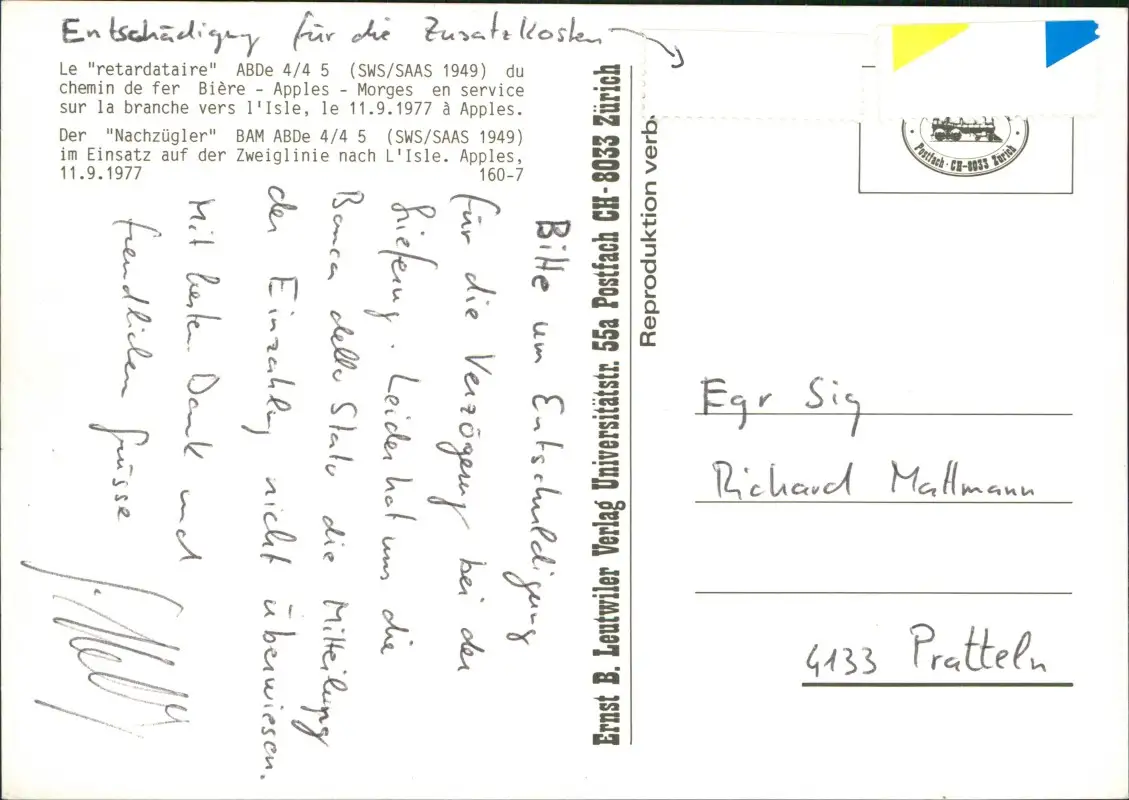 Entschädigung für die Zusatzkosten
Le "retardataire" ABDe 4/4 5 (SWS/SAAS 1949) du
chemin de fer Bière - Apples - Morges en service
sur la branche vers l'Isle, le 11.9.1977 à Apples.
Der "Nachzügler" BAM ABDe 4/4 5 (SWS/SAAS 1949)
im Einsatz auf der Zweiglinie nach L'Isle. Apples,
11.9.1977 160-7
Bitte um Entschuldigung
für die Verzögerung bei der
Lieferung. Leider hat uns die
Banca dello Stato die Mitteilung
der Einzahlung nicht überwiesen.
Mit besten Dank und
freundlichen Grüsse
Ernst B. Leutwiler Verlag Universitätstr. 55a Postfach CH-8033 Zürich
Reproduktion verb.
Postfach · CH-8033 Zürich
Egr Sig
Richard Mattmann
4133 Pratteln